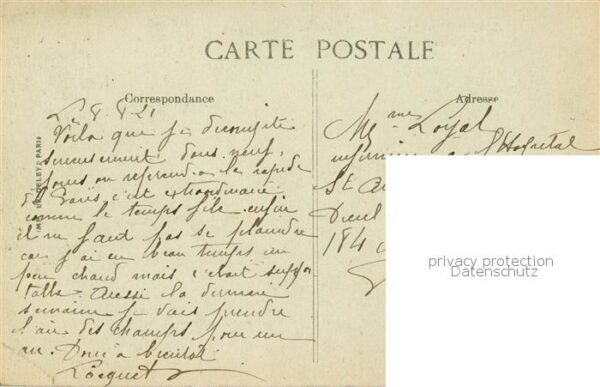 CARTE POSTALE
Correspondance
Adresse
Le 8.8.21
Voilà que je décompte
sérieusement dans neuf
jours on reprendra le rapide
de Paris c'est extraordinaire
comme le temps file enfin
il ne faut pas se plaindre
car j'ai eu beau temps un
peu chaud mais c'était suppor
table. Aussi la dernière
semaine je vais prendre
l'air des champs pour un
an. Donc à bientôt
Locquet
Mme Loyal
à l'Hopital
St
184
privacy protection
Datenschutz